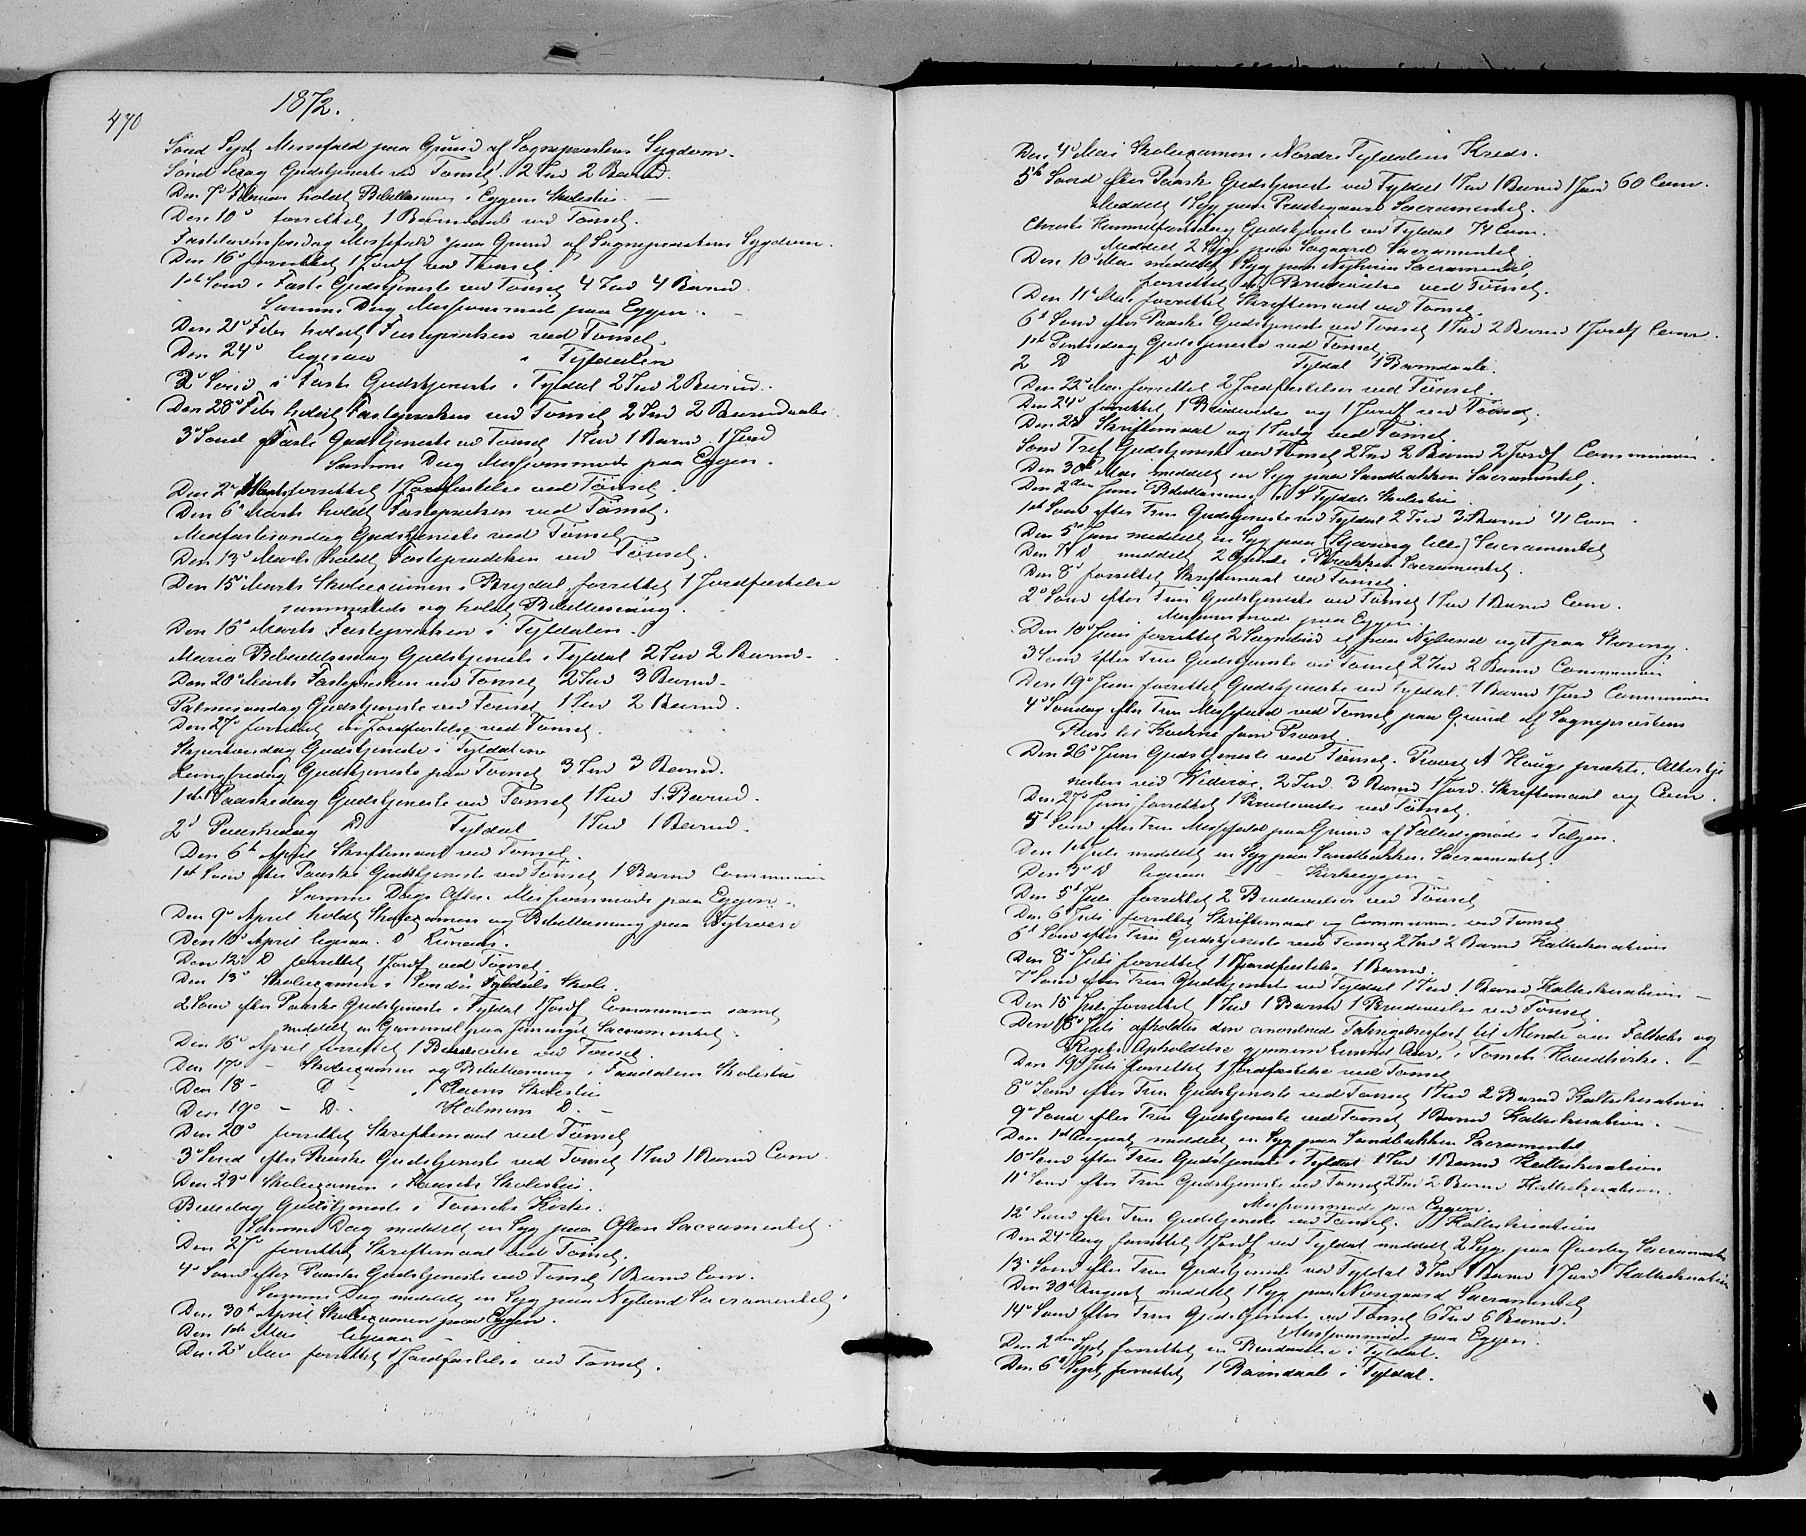 470
1872.
Sønd Sept Messefald paa Grund af Sognepræstens Sygdom.
Sønd Sexag Gudstjeneste ved Tønset. 2 Ind 2 Barnd.
Den 7d Februar holdt Bibellæsning i Eggens Skolestue.
Den 10d forrettet 1 Barnedaab ved Tønset.
Fastelavnssøndag Messefald paa Grund af Sognepræstens Sygdom.
Den 16d forrettet 1 Jordf ved Tønset.
1ste Sønd i Faste Gudstjeneste ved Tønset 4 Ind 4 Barnd.
Samme Dag Missionsmøde paa Eggen.
Den 21d Febr holdt Fastepræken ved Tønset.
Den 24d ligesaa " Tyldalen
2d Sønd i Faste Gudstjeneste i Tyldal 2 Ind 2 Barnd.
Den 28d Febr holdt Fastepræken ved Tønset 2 Ind 2 Barndaabe
3d Sønd i Faste Gudstjeneste ved Tønset 1 Ind 1 Barnd 1 Jord
Samme Dag Missionsmøde paa Eggen.
Den 2d Marts forrettet 1 Jordfæstelse ved Tønset.
Den 6d Marts holdt Fastepræken ved Tønset.
Midfastesøndag Gudstjeneste ved Tønset
Den 13d Marts holdt Fastepræken ved Tønset.
Den 15d Marts Skoleexamen i Brydal, forrettet 1 Jordfæstelse
sammesteds og holdt Bibellæsning.
Den 16d Marts Fastepræken i Tyldalen.
Maria Bebudelsesdag Gudstjeneste i Tyldal 2 Ind 2 Barnd.
Den 20d Marts Fastepræken ved Tønset 2 Ind 3 Barnd.
Palmesøndag Gudstjeneste ved Tønset 1 Ind 2 Barnd.
Den 27d forrettet en Jordfæstelse ved Tønset.
Skjærtorsdag Gudstjeneste i Tyldalen
Langfredag Gudstjeneste paa Tønset 3 Ind 3 Barnd.
1ste Paaskedag Gudstjeneste ved Tønset 1 Ind 1 Barnd.
2d Paaskedag D Tyldal 1 Ind 1 Barnd.
Den 6te April Skriftemaal ved Tønset.
1st Sønd efter Paaske Gudstjeneste ved Tønset 1 Barnd Communion
Samme Dags Aften Missionsmøde paa Eggen.
Den 9d April holdt Skoleexamen og Bibellæsning paa
Den 10d April ligesaa D
Den 12d D forrettet 1 Jordf ved Tønset.
Den 13d Skoleexamen i Søndre Tyldals Skole.
2 Sønd efter Paaske Gudstjeneste i Tyldal 1 Jordf Communion samt
meddelt en Gammel paa Sacramentet.
Den 16d April forrettet 1 Brudevielse ved Tønset.
Den 17d - Skoleexamen og Bibellæsning i Faadalens Skolestue
Den 18 - D - Skolestue
Den 19d - D - Holmens D.
Den 20d forrettet Skriftemaal ved Tønset
3d Sønd efter Paaske Gudstjeneste ved Tønset 1 Ind 1 Barnd Com.
Den 23d Skoleexamen i Skolestue.
Bededag Gudstjeneste i Tønsets Kirke.
Samme Dag meddelt en Syg paa Sacramentet.
Den 27d forrettet Skriftemaal ved Tønset.
4d Sønd efter Paaske Gudstjeneste ved Tønset 1 Barnd Com.
Samme Dag meddelt en Syg paa Nylænd Sacramentet.
Den 30d April Skoleexamen paa Eggen.
Den 1ste Mai ligesaa
Den 2d Mai forrettet 1 Jordfæstelse ved Tønset.
Den 4d Mai Skoleexamen i Nordre Tyldalens Kreds.
5te Sønd efter Paaske Gudstjeneste ved Tyldal 1 Ind 1 Barnd 1 Jord 60 Com.
Meddelt 1 Syg paa Præstegaard Sacramentet.
Christi Himmelfartsdag Gudstjeneste ved Tyldal 74 Com.
Meddelt 2 Syge paa Sacramentet.
Den 10d Mai meddelt 1 Syg paa Sacramentet,
forrettet Brudevielse ved Tønset.
Den 11d Mai forrettet Skriftemaal ved Tønset.
6d Sønd efter Paaske Gudstjeneste ved Tønset 1 Ind 2 Barnd 1 Jordf Com.
1ste Pintsedag Gudstjeneste ved Tønset
2 D D Tyldal 1 Barndaab.
Den 22d Mai forrettet 2 Jordfæstelser ved Tønset.
Den 24d forrettet 1 Brudevielse og 1 Jordf ved Tønset.
Den 25 Skriftemaal og 1 ved Tønset
Sønd Tref Gudstjeneste ved Tønset 2 Ind 2 Barnd 2 Jordf Communion.
Den 30te Mai meddelt en Syg paa Sandbakken Sacramentet.
Den 2den Juni Bibellæsning i Tyldals Skolestue
1ste Sønd efter Trin Gudstjeneste ved Tyldal 2 Ind 3 Barnd 41 Com.
Den 5te Juni meddelt en Syg paa Sacramentet
Den 7d D meddelt 2 Sacramentet.
Den 8d forrettet Skriftemaal ved Tønset.
2d Sønd efter Trin Gudstjeneste ved Tønset 1 Ind 1 Barnd Com.
Missionsmøde paa Eggen
Den 10d Juni forrettet 2 et paa Nylænd og et paa
3 Sønd efter Trin Gudstjeneste ved Tønset 2 Ind 2 Barnd Communion
Den 19d Juni forrettet Gudstjeneste ved Tyldal. 1 Barnd 1 Jord Communion
4d Søndag efter Trin Messefald ved Tønset paa Grund af Sognepræstens
Reise til som Provst.
Den 26d Juni Gudstjeneste ved Tønset. Provst A Hauge prækte, Altertje
nesten ved Widerøe. 2 Ind 3 Barnd 1 Jord. Skriftemaal og Com.
Den 27d Juni forrettet 1 Brudevielse ved Tønset.
5d Sønd efter Trin Messefald paa Grund af i Tolgen.
Den 1ste Juli meddelt en Syg paa Sandbakken Sacramentet.
Den 3d D ligesaa - Kirkeeggen
Den 5d Juli forrettet 2 Brudevielser ved Tønset
Den 6d Juli forrettet Skriftemaal og Communion ved Tønset
6d Sønd efter Trin Gudstjeneste ved Tønset 2 Ind 2 Barnd Katkekisation
Den 8d Juli forrettet 1 Jordfæstelse 1 Barnd.
7d Sønd efter Trin Gudstjeneste ved Tyldal 1 Ind 1 Barnd Katkekisation
Den 15d Juli forrettet 1 Ind 1 Barnd 1 Brudevielse ved Tønset.
Den 18d Juli afholdtes den anordnede Taksigelsesfest til Minde om Folkets og
Rigets Opholdelse gjennem tusind Aar, i Tønsets Hovedkirke.
Den 19d Juli forrettet 1 Jordfæstelse ved Tønset
8d Sønd efter Trin Gudstjeneste ved Tønset 1 Ind 2 Barnd Katkekisation.
9d Sønd efter Trin Gudstjeneste ved Tønset 1 Barnd Katkekisation.
Den 1st August meddelt en Syg paa Sandbakken Sacramentet
10d Sønd efter Trin Gudstjeneste i Tyldal 1 Ind 1 Barnd Katkekisation
11d Sønd efter Trin Gudstjeneste ved Tønset 2 Ind 2 Barnd Katkekisation.
Missionsmøde paa Eggen.
12d Sønd efter Trin Gudstjeneste ved Tønset. Katkekisation
Den 24d Aug forrettet 1 Jordf ved Tyldal meddelt 2 Syge paa Øverby Sacramentet
13d Sønd efter Trin Gudstjeneste ved Tyldal 3 Ind 1 Barnd 1 Jord Katkekisation
Den 30d August meddelt 1 Syg paa Sacramentet
14d Sønd efter Trin Gudstjeneste ved Tønset 6 Ind 6 Barnd.
Missionsmøde paa Eggen.
Den 2den Sept forrettet en Brudevielse i Tyldal.
Den 6d Sept forrettet 1 Barndaab i Tyldal.